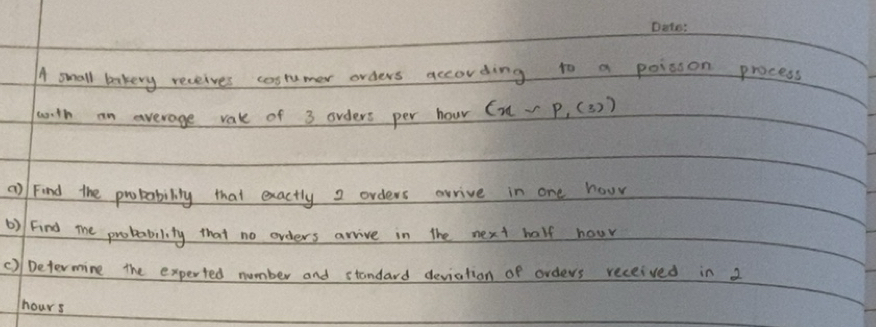 Date:
A small bakery receives costumer orders according to a poisson process
with an average rate of 3 orders per hour (x ~ P, (3))
a) Find the probability that exactly 2 orders arrive in one hour
b) Find the probability that no orders arrive in the next half hour
c) Determine the experted number and standard deviation of orders received in 2
hours